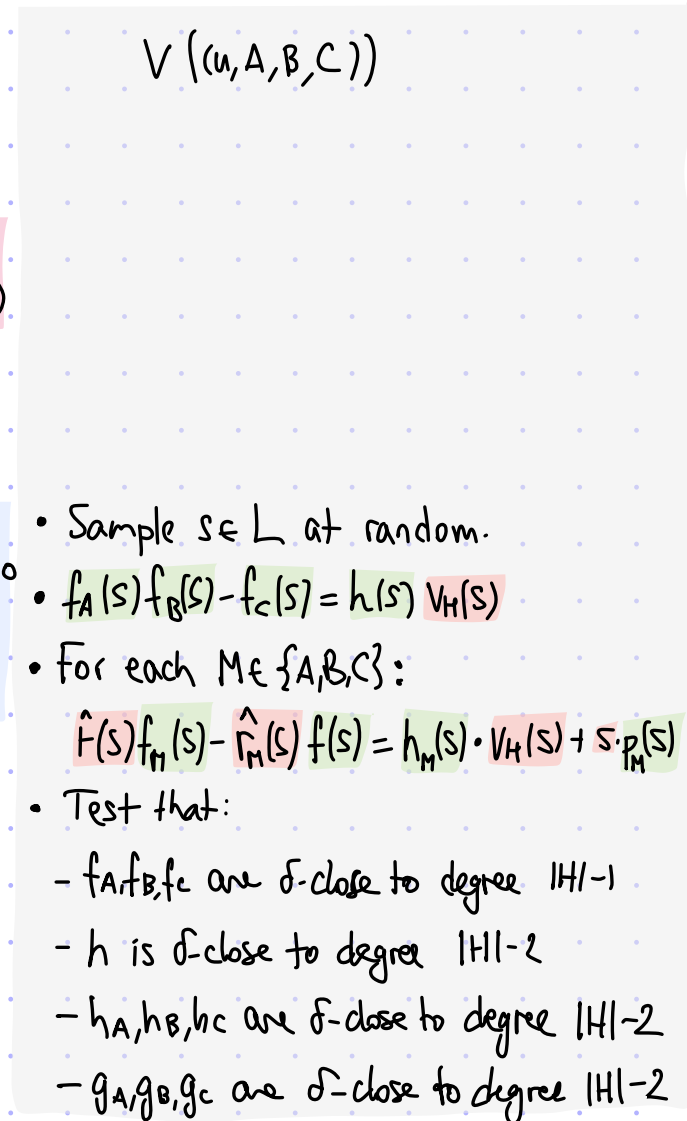 V((u,A,B,C))
• Sample s∈L at random.
• f_A(s)f_B(s)-f_C(s)=h(s) V_H(s)
• For each M∈{A,B,C}:
r̂(s)f_M(s)-r̂_M(s) f(s)=h_M(s)·V_H(s)+s·p_M(s)
• Test that:
- f_A,f_B,f_C are δ-close to degree |H|-1
- h is δ-close to degree |H|-2
- h_A,h_B,h_C are δ-close to degree |H|-2
- g_A,g_B,g_C are δ-close to degree |H|-2